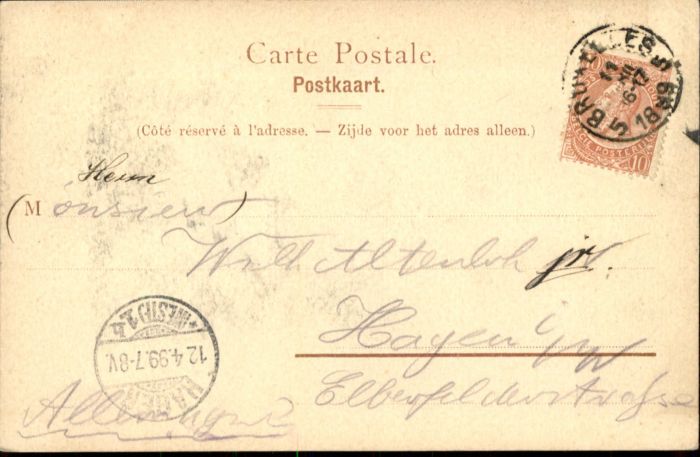 Carte Postale.
Postkaart.
(Côté réservé à l'adresse. — Zijde voor het adres alleen.)
Herrn
(Monsieur)
Will. Altenloh jr.
Hagen i/W
Elberfelderstrasse
Allemagne
BRUXELLES 5
18
10
12.4.99.7-8V.
HAGEN
(WESTF)